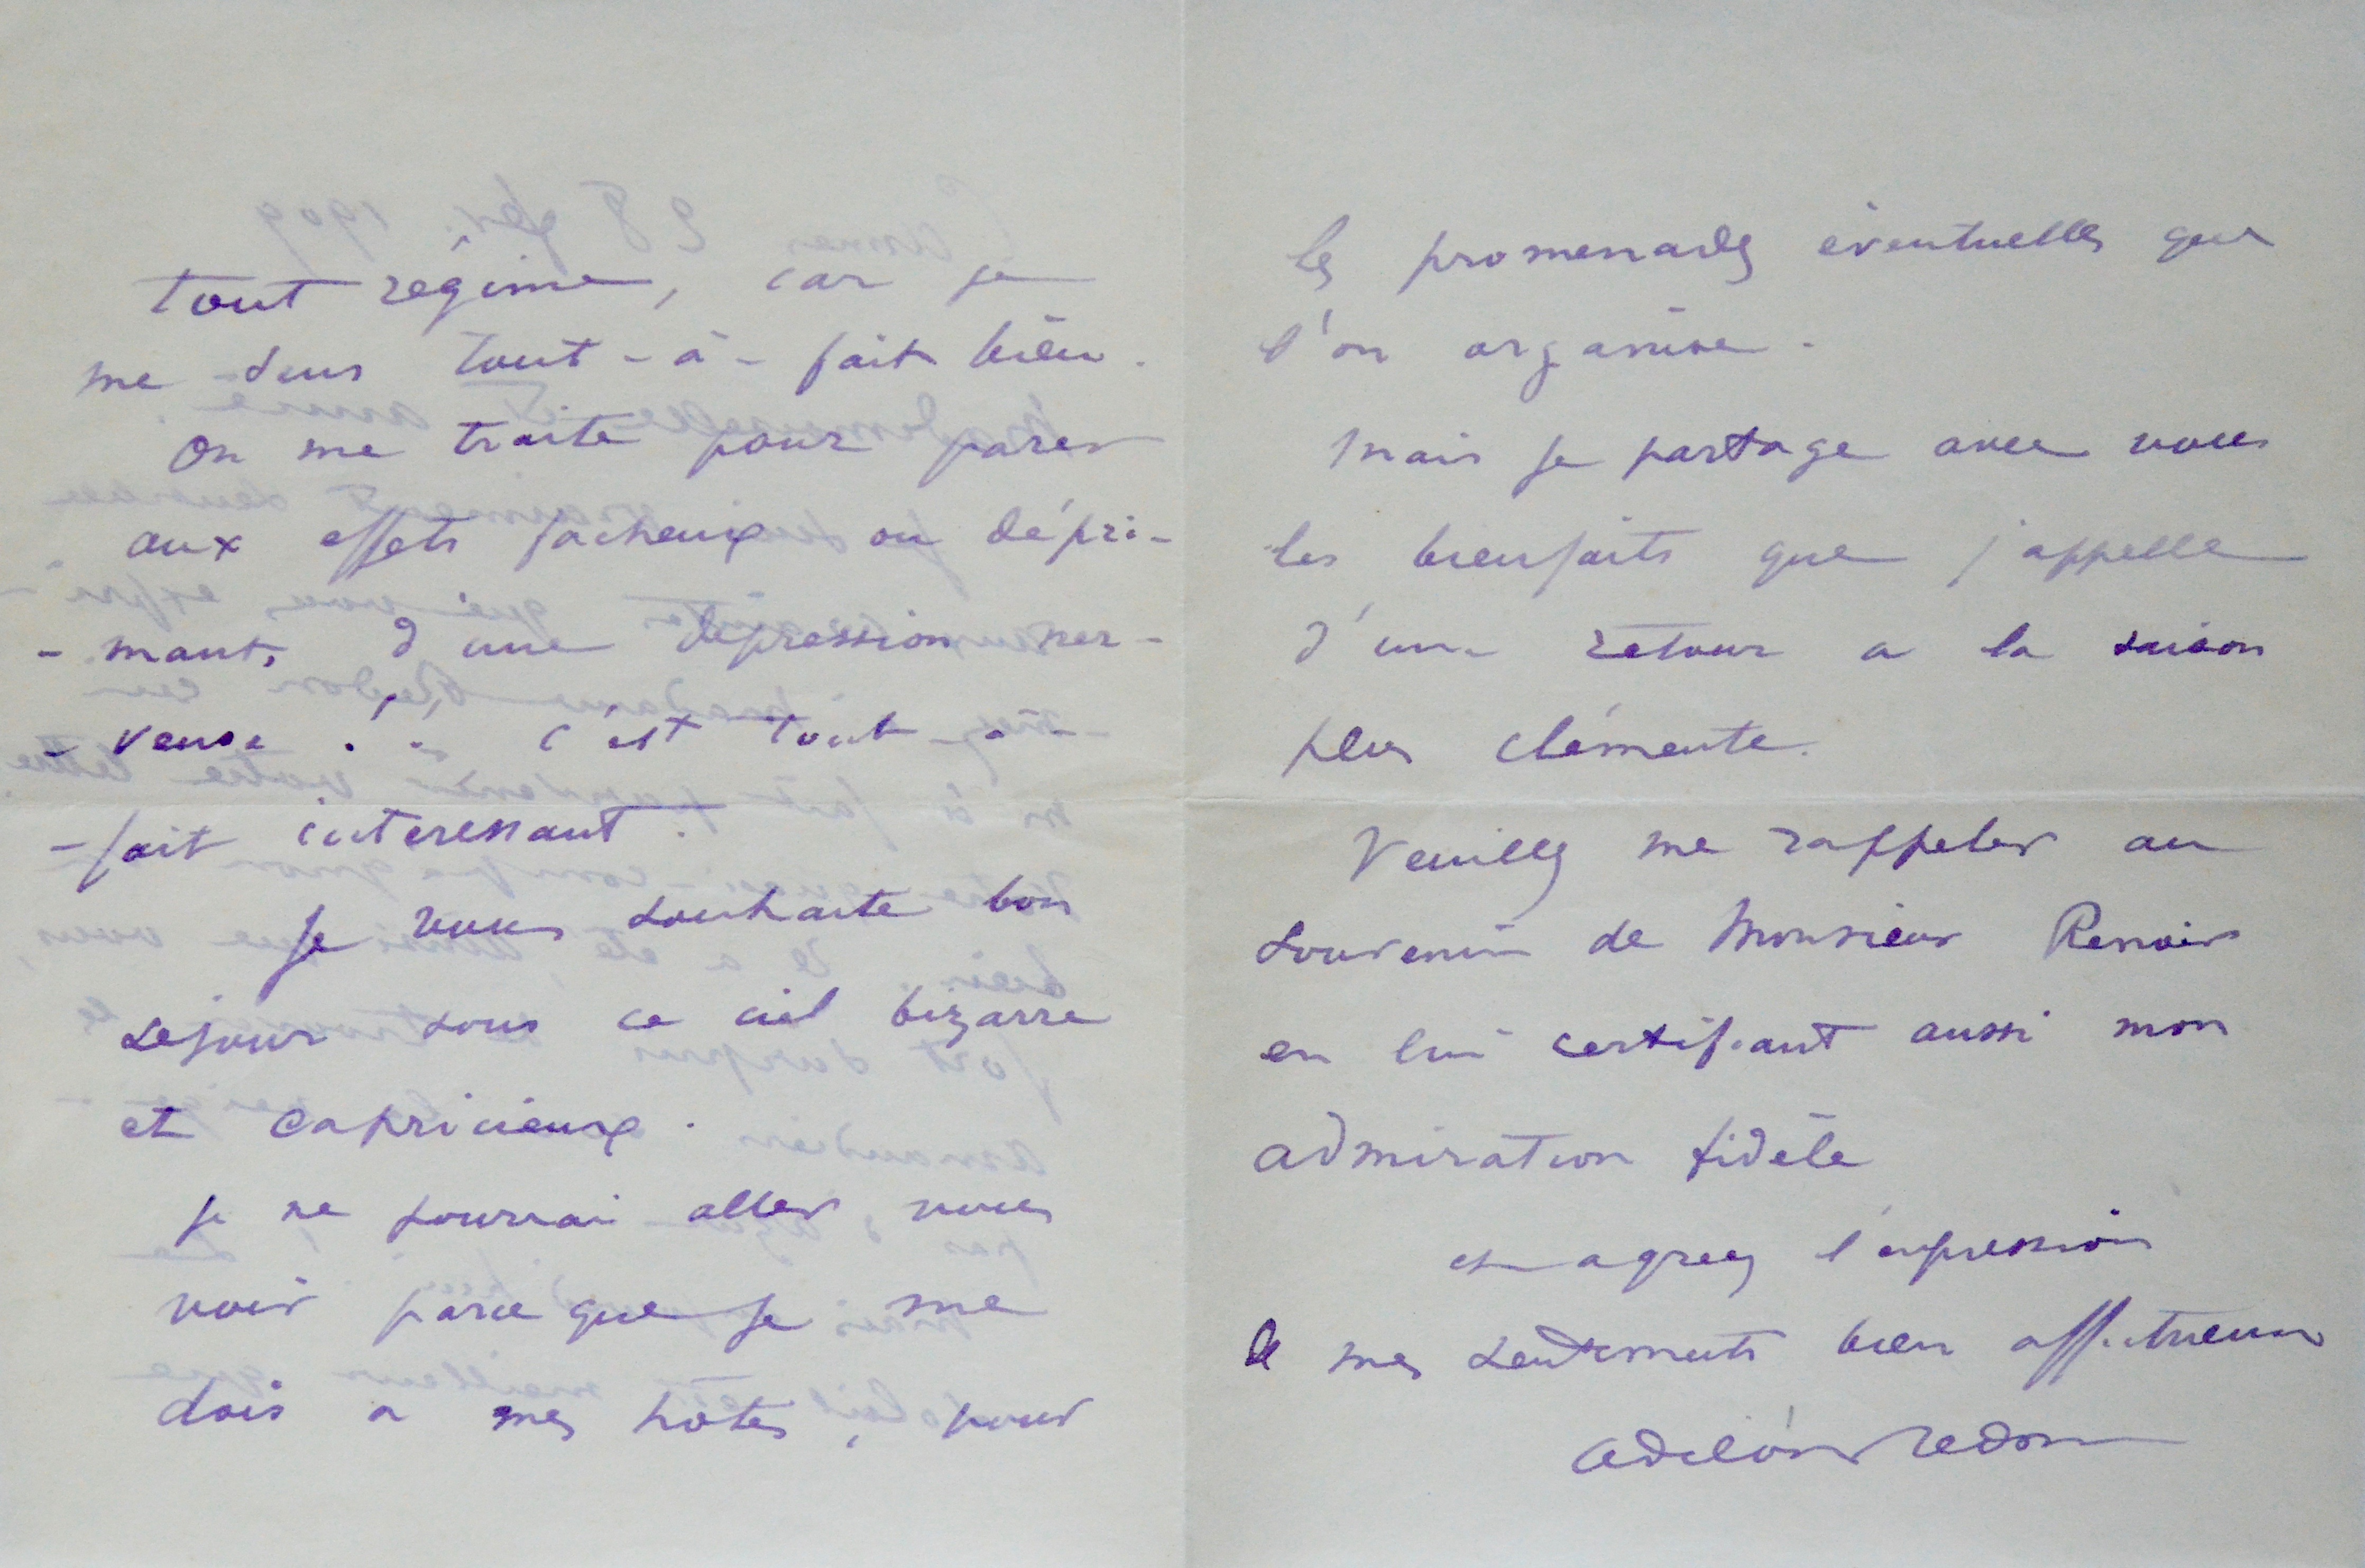 tout régime, car je
me sens tout-à-fait bien.
On me traite pour parer
aux effets facheux ou dépri-
-mants, d'une dépression ner-
-veuse !! c'est tout-a-
-fait interessant.
Je vous souhaite bon
sejour sous ce ciel bizarre
et capricieux.
je ne pourrai aller vous
voir parce que je me
dois a mes hotes, pour
les promenades éventuelles que
l'on organise.
Mais je partage avec vous
les bienfaits que j'appelle
d'un retour a la saison
plus clémente.
Veuillez me rappeler au
souvenir de Monsieur Renoir
en lui certifiant aussi mon
admiration fidèle
et agreez l'expression
de mes sentiments bien affectueux
Odilon Redon